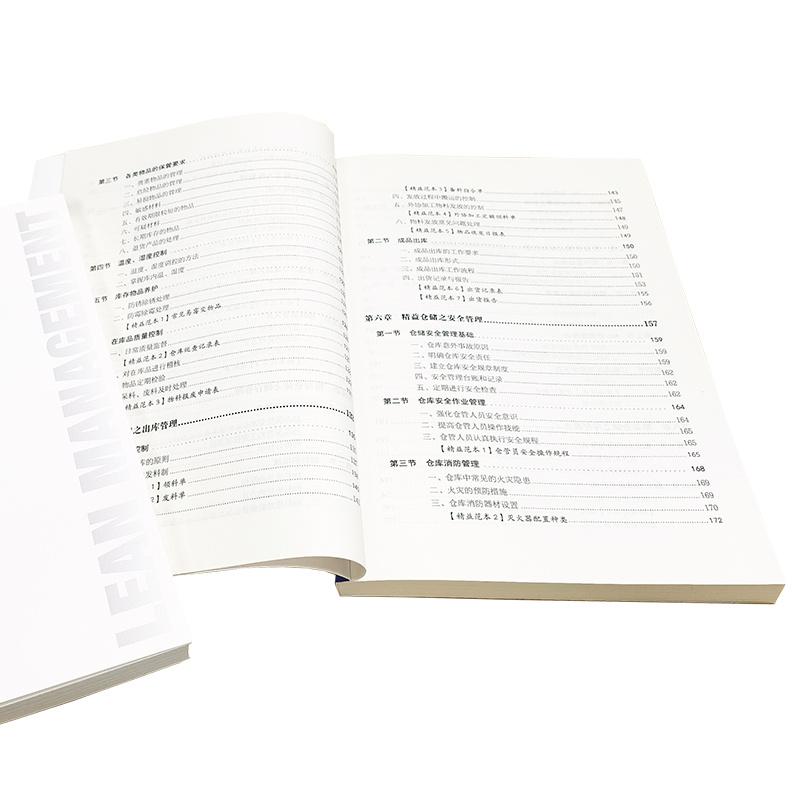 第三节 各类物品的保管要求
一、贵重物品的管理
二、危险物品的管理
三、易损物品的管理
四、敏感材料
五、有效期限较短的物品
六、可疑材料
七、长期库存的物品
八、退货产品的处理
第四节 温度、湿度控制
一、温度、湿度调控的方法
二、掌握库内温、湿度
五节 库存物品养护
一、防锈除锈处理
二、防霉除霉处理
【精益范本1】常见易霉变物品
在库品质量控制
、日常质量监督
【精益范本2】仓库巡查记录表
、对在库品进行稽核
物品定期检验
呆料、废料及时处理
精益范本3】物料报废申请表
之出库管理
控制
库的原则
发料制
1】领料单
2】发料单
【精益范本3】备料指令单 143
四、发放过程中搬运的控制 145
五、外协加工物料发放的控制 147
【精益范本4】外协加工定额领料单 148
六、物料发放常见问题处理 149
【精益范本5】物品拨发日报表 149
第二节 成品出库 150
一、成品出库的工作要求 150
二、成品出库形式 150
三、成品出库工作流程 151
四、出货记录与报告 153
【精益范本6】出货记录表 155
【精益范本7】出货报告 156
第六章 精益仓储之安全管理 157
第一节 仓储安全管理基础 159
一、仓库意外事故原因 159
二、明确仓库安全责任 160
三、建立仓库安全规章制度 162
四、安全管理台账和记录 162
五、定期进行安全检查 162
第二节 仓库安全作业管理 164
一、强化仓管人员安全意识 164
二、提高仓管人员操作技能 165
三、仓管人员认真执行安全规程 165
【精益范本1】仓管员安全操作规程 165
第三节 仓库消防管理 168
一、仓库中常见的火灾隐患 169
二、火灾的预防措施 169
三、仓库消防器材设置 170
【精益范本2】灭火器配置种类 172
LEAN MANAGEMENT